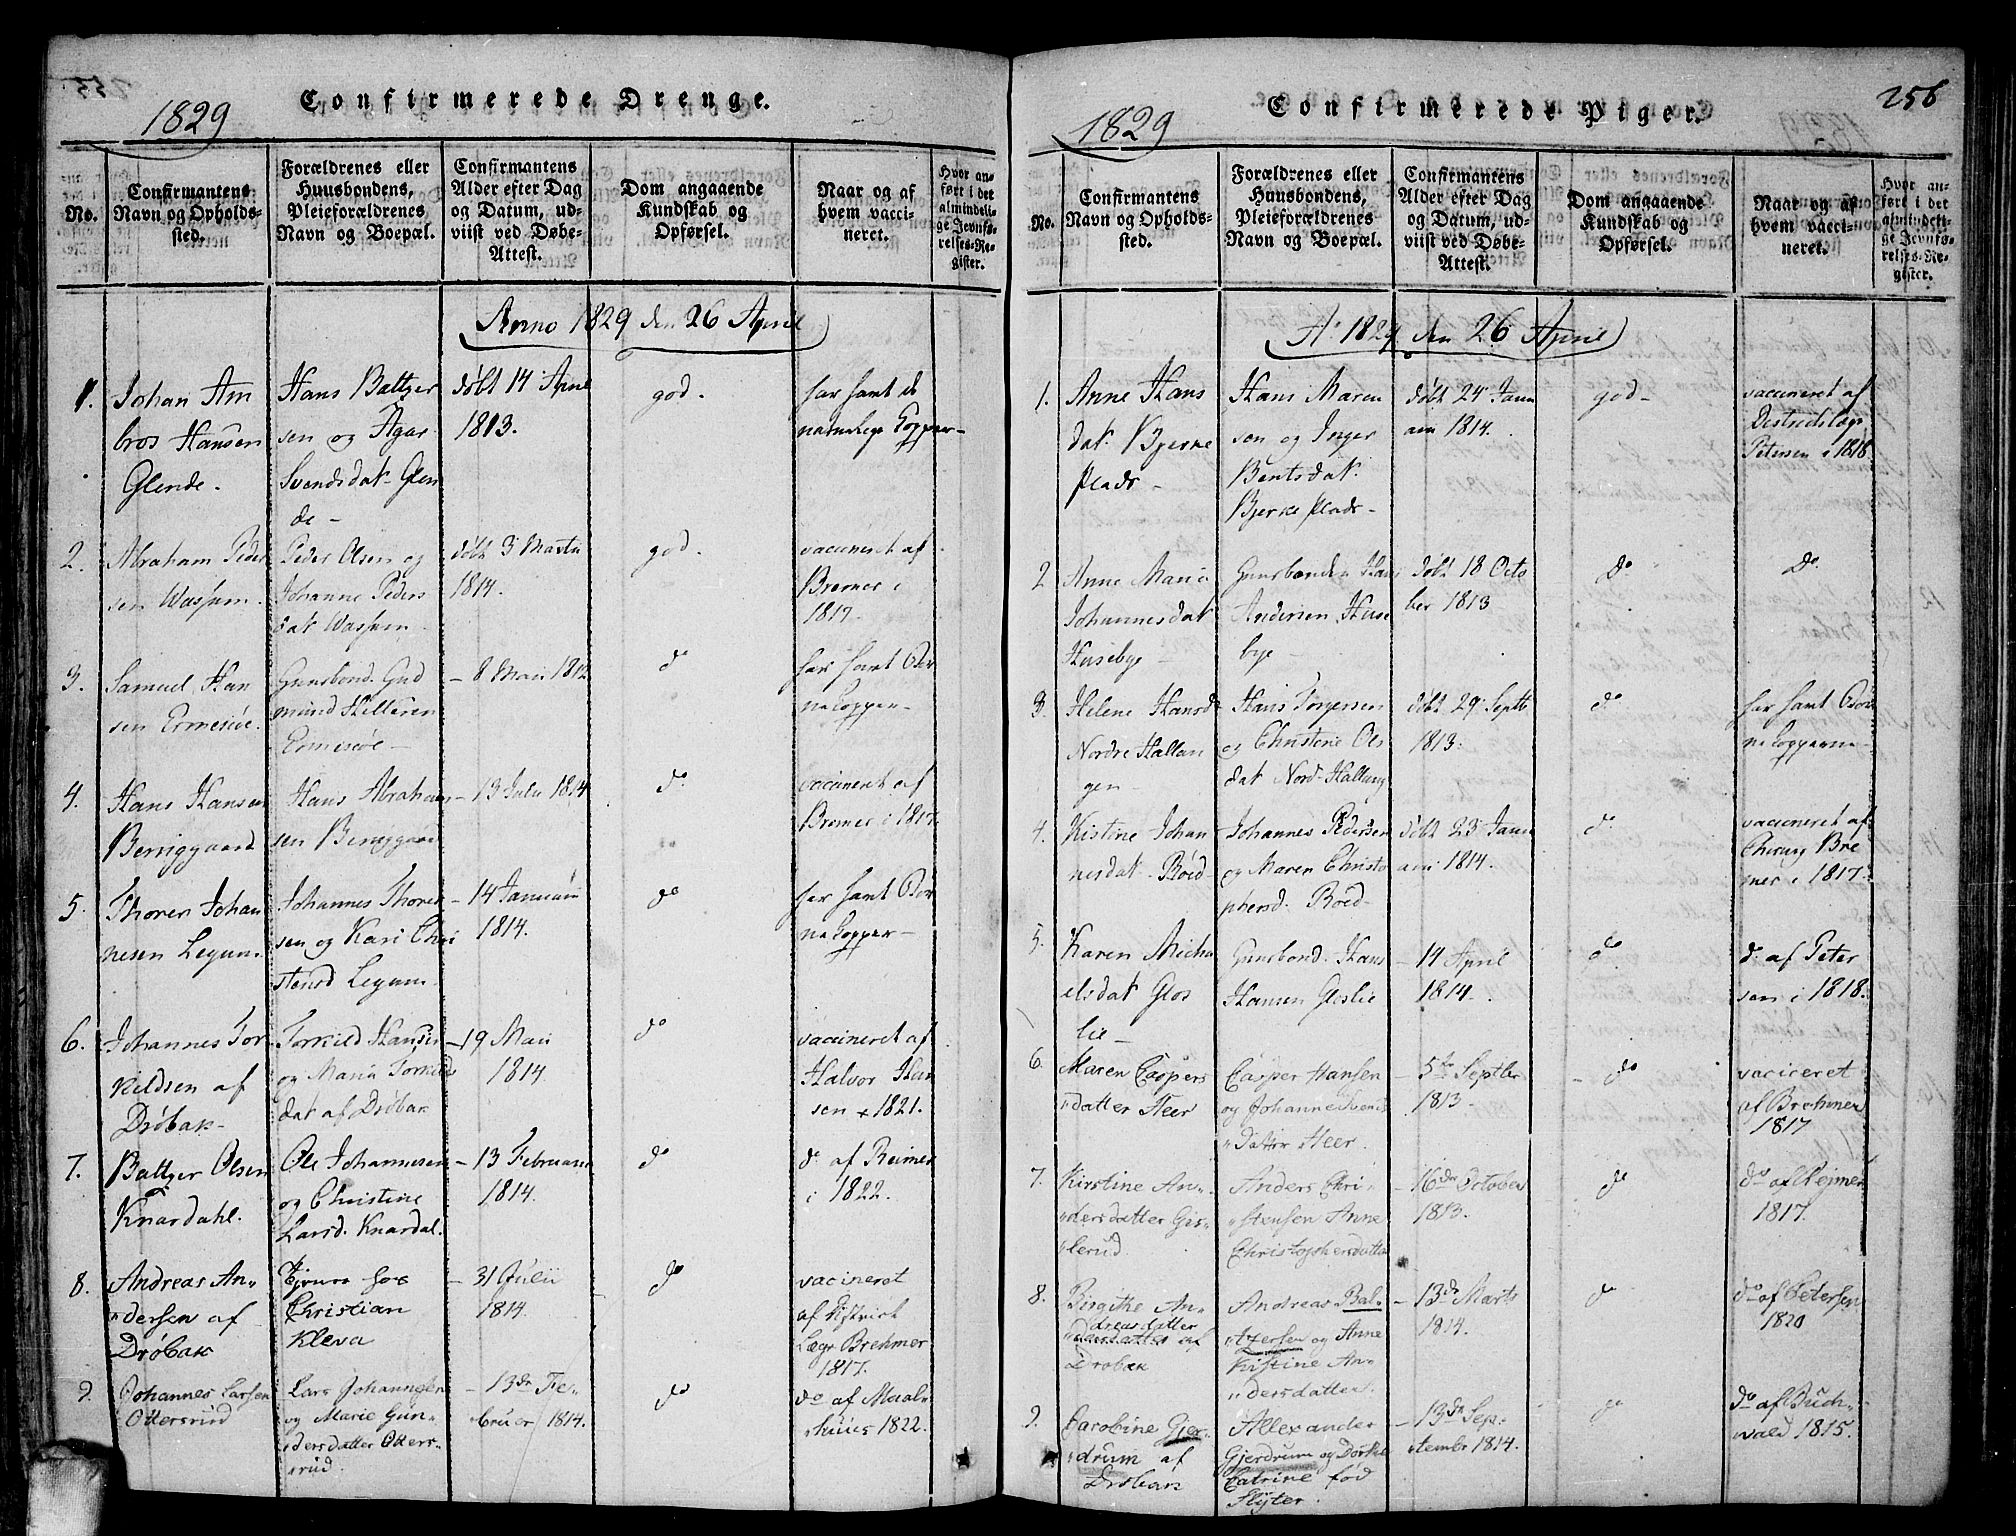 1829
Confirmerede Drenge.
No.
Confirmantens
Navn og Opholds-
sted.
Forældrenes eller
Huusbondens,
Pleieforældrenes
Navn og Boepæl.
Confirmantens
Alder efter Dag
og Datum, ud-
viist ved Døbe-
Attest.
Dom angaaende
Kundskab og
Opførsel.
Naar og af
hvem vacci-
neret.
Hvor an-
ført i det
almindeli-
ge Jevnfø-
relses-Re-
gister.
Anno 1829 den 26 April
1.
Johan Am
bros Hansen
Glende.
Hans Baltzer
sen og Agar
Svendsdat Glen
de -
døbt 14 April
1813.
god.
har havt de
naturlige Kopper -
2.
Abraham Peder
sen Waspen.
Peder Olsen og
Johanne Peders
dat Waspen
døbt 3 Martii
1814.
god.
vaccineret af
Bremer i
1817.
3.
Samuel Han
sen Ermesøe.
Huusbond. Gud
mund Killeren
Ermesøe -
- 8 Maii 1812
do
har havt Bør
ne Kopper -
4.
Hans Hansen
Berriggaard
Hans Abraham
sen Berriggaar
- 13 Julii 1814
do
vaccineret af
Bremer i 1817.
5.
Thorer Johan
nesen Legum.
Johannes Thorer
sen og Kari Chri
stensd Legum
- 14 Januarii
1814.
do
har havt Bør
ne Kopper -
6.
Johannes Tor
kildsen af
Drøbak -
Torkild Hansen
og Maria Torkilds
dat af Drøbak
- 19 Maii
1814.
do
vaccineret af
Halvor Han
sen 1821.
7.
Baltzer Olsen
Knardahl.
Ole Johannesen
og Christine
Larsd. Knardal.
- 13 Februarii
1814.
do
do af Reimer
i 1822.
8.
Andreas An-
dersen af
Drøbak
Tjener hos
Christian
Kleva
- 31 Julii
1814.
do
vacineret
af Distrikt
Læge Brehmer
1817.
9.
Johannes Larsen
Ottersrud
Lars Johannesen
og Marie Gun-
dersdatter Otters-
rud.
- 13de Fe-
bruer 1814.
do
do af Maal-
huus 1822.
1829
Confirmerede Piger.
256
No.
Confirmantens
Navn og Opholds-
sted.
Forældrenes eller
Huusbondens,
Pleieforældrenes
Navn og Boepæl.
Confirmantens
Alder efter Dag
og Datum, ud-
viist ved Døbe-
Attest.
Dom angaaende
Kundskab og
Opførsel.
Naar og af
hvem vacci-
neret.
Hvor an-
ført i det
almindeli-
ge Jevnfø-
relses-Re-
gister.
Ao 1829 den 26 April
1.
Anne Hans
dat. Bjerke
plads -
Hans Maren
sen og Inger
Bentsdat.
Bjerke plads -
døbt 24 Janu
arii 1814.
god -
vaccineret af
Destrictslæge
Petersen i 1818.
2
Anne Maria
Johannesdat
Husebye -
Huusbonden Hans
Andersen Huse
bye -
døbt 18 Octo
ber 1813
do
do
3.
Helene Hansd
Nordre Hallan
gen -
Hans Torgersen
og Christine Ols
dat Nord-Hallang
døbt 29 Septb
1813.
do
har havt Bør
ne Kopperne
4.
Kistine Johan
nesdat. Røed -
Johannes Pedersen
og Maren Christo
phersd. Røed -
døbt 23 Janu
arii 1814.
do
vaccineret af
Chirurg Bre
mer i 1817.
5.
Karen Micha
elsdat Glos
lie -
Huusbond. Hans
Hansen Gloslie
- 14 April
1814.
do
do af Peter
sen i 1818.
6.
Maren Caspers
datter Heer
Casper Hansen
og Johanne Svends
datter Heer.
- 5te Septber
1813.
do
vacineret
af Brehmer
1817
7.
Kirstine An-
dersdatter Gis-
lerud.
Anders Chri-
stensen Anne
Christophersdatter
- 16de October
1813.
do
do af Rejmer
1817.
8.
Birgithe An-
dreasdatter
dersdatter af
Drøbak
Andreas Bal-
tzersen og Anne
Kistine An-
dersdatter.
- 13de Marts
1814.
do
do af Petersen
1820
9.
Carobine Gjer-
drum af
Drøbak
Allexander
Gjerdrum og Dorthe
Catrine fød
Flyter.
- 13de Sep-
tembr 1814.
do
do af Buch-
wald 1815.